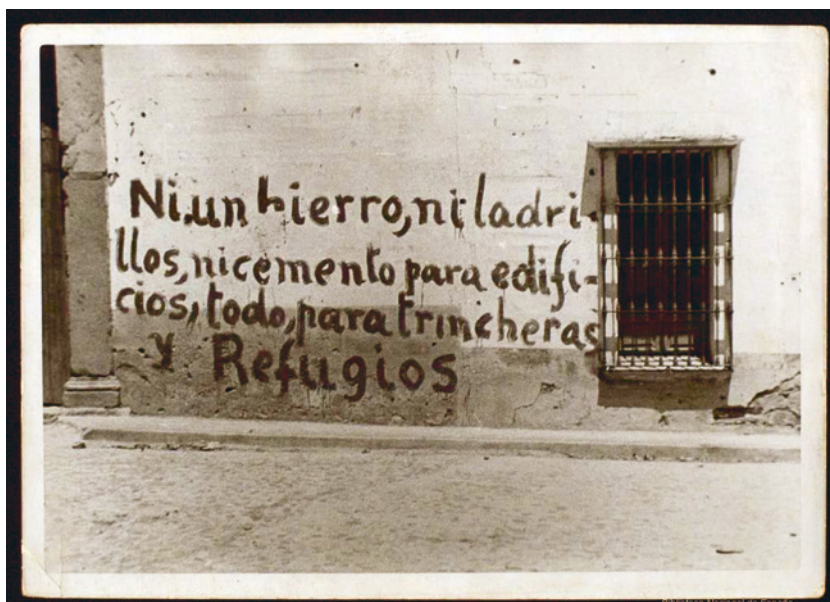 Ni un hierro, ni ladri-
llos, ni cemento para edifi-
cios, todo, para trincheras
y Refugios